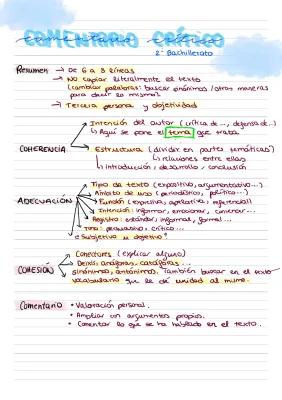 COMENTARIO CRÍTICO
2º Bachillerato
Resumen → De 6 a 8 líneas
→ No copiar literalmente el texto
(cambiar palabras: buscar sinónimos / otras maneras
para decir lo mismo).
→ Tercera persona y objetividad
Intención del autor (crítica de..., defensa de...)
↳ Aquí se pone el tema que trata
COHERENCIA
Estructura (dividir en partes temáticas)
↳ relaciones entre ellas
↳ introducción / desarrollo / conclusión
Tipo de texto (expositivo, argumentativo...)
Ámbito de uso (periodístico, político...)
Función (expresiva, apelativa, referencial)
ADECUACIÓN
Intención: informar, emocionar, convencer...
Registro: estándar, informal, formal...
Tono: persuasivo, crítico...
¿Subjetivo u objetivo?
Conectores (explicar alguno)
Deixis: anáforas, catáforas...
COHESIÓN
sinónimos, antónimos. También buscar en el texto
vocabulario que le dé unidad al mismo.
Comentario • Valoración personal.
• Ampliar con argumentos propios.
• Comentar lo que se ha hablado en el texto.